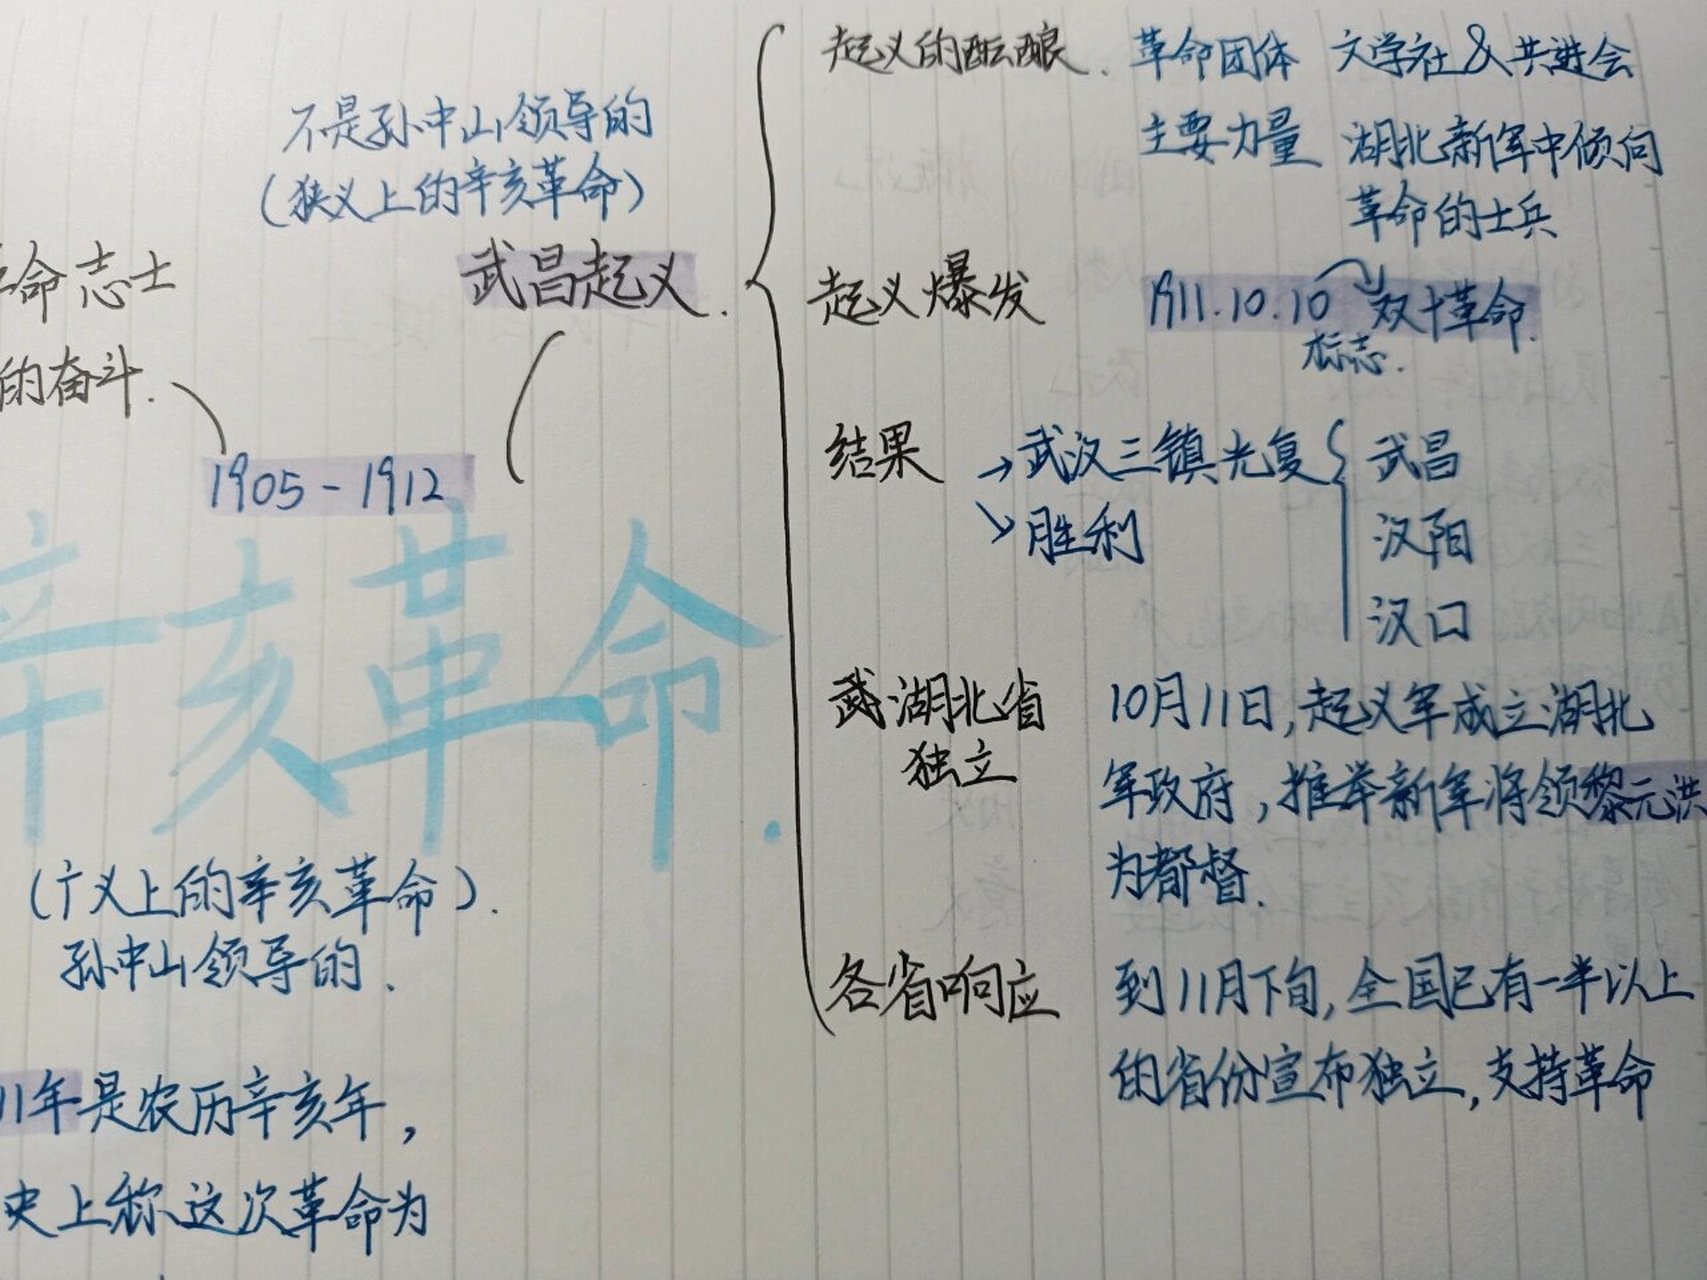 不是孙中山领导的
(狭义上的辛亥革命)
武昌起义.
革命志士
的奋斗.
1905-1912
辛亥革命.
(广义上的辛亥革命).
孙中山领导的.
11年是农历辛亥年,
史上称这次革命为
起义的酝酿.
革命团体 文学社&共进会
主要力量 湖北新军中倾向
革命的士兵
起义爆发
1911.10.10 双十革命.
标志.
结果 →武汉三镇光复 { 武昌
汉阳
汉口
↘胜利
湖北省
独立
10月11日,起义军成立湖北
军政府,推举新军将领黎元洪
为都督.
各省响应
到11月下旬,全国已有一半以上
的省份宣布独立,支持革命